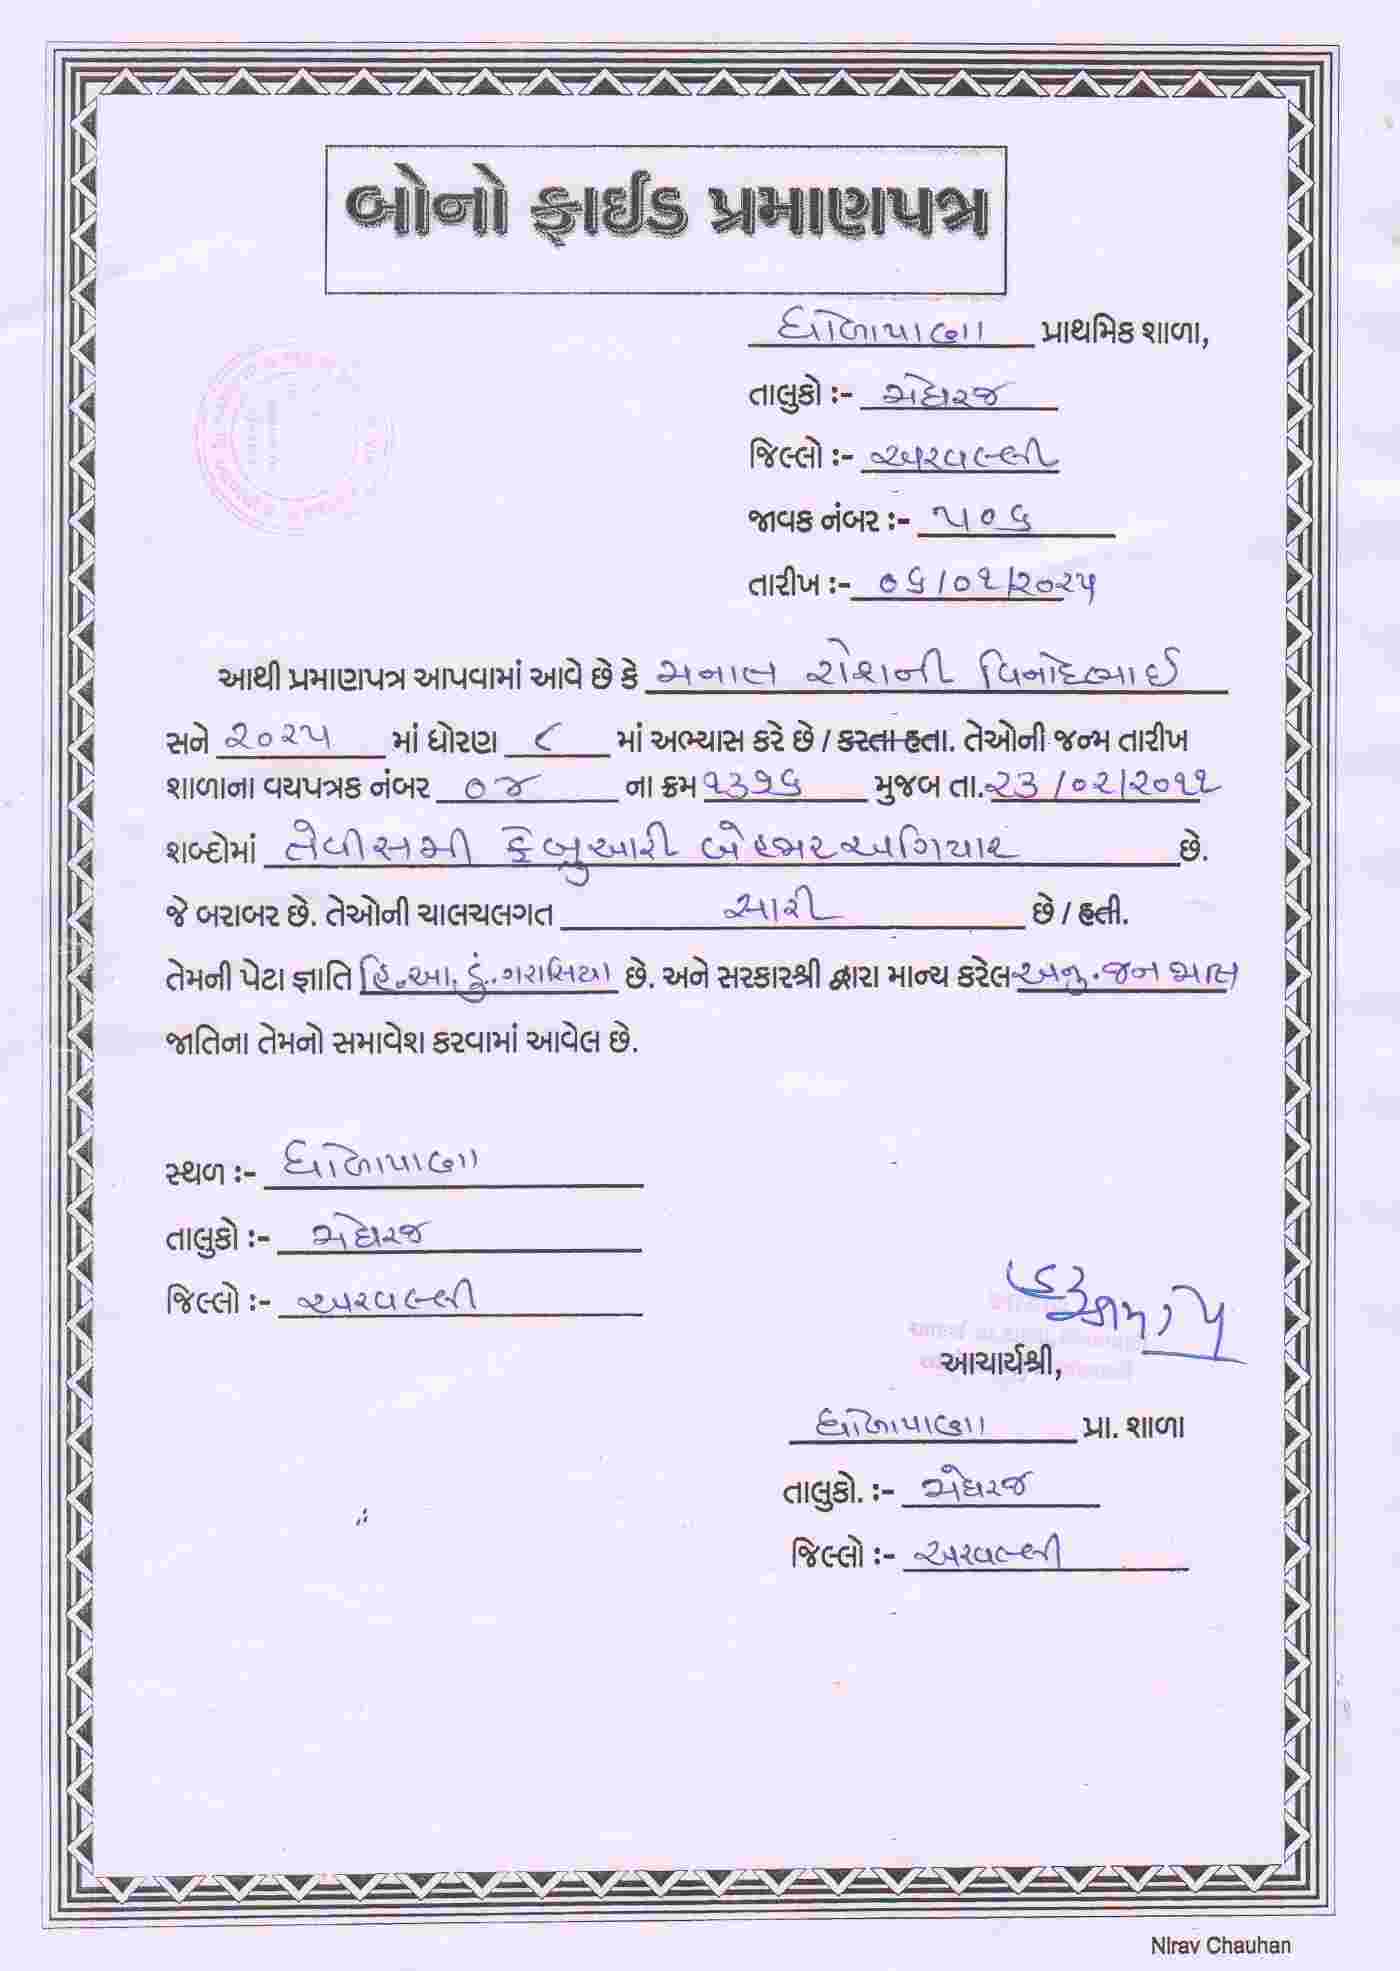 બોનો ફાઈડ પ્રમાણપત્ર
ધોળાપાણા પ્રાથમિક શાળા,
તાલુકો :- મેઘરજ
જિલ્લો :- અરવલ્લી
જાવક નંબર :- ૫૦૬
તારીખ :- ૦૬/૦૧/૨૦૨૫
આથી પ્રમાણપત્ર આપવામાં આવે છે કે મનાત રોશની વિનોદભાઈ
સને ૨૦૨૫ માં ધોરણ ૮ માં અભ્યાસ કરે છે / કરતા હતા. તેઓની જન્મ તારીખ
શાળાના વયપત્રક નંબર ૦૪ ના ક્રમ ૧૩૧૬ મુજબ તા. ૨૩/૦૨/૨૦૧૧
શબ્દોમાં તેવીસમી ફેબ્રુઆરી બેહજાર અગિયાર છે.
જે બરાબર છે. તેઓની ચાલચલગત સારી છે / હતી.
તેમની પેટા જ્ઞાતિ હિ.આ.ડું.ગરાસિયા છે. અને સરકારશ્રી દ્વારા માન્ય કરેલ અનુ.જન જાતિ
જાતિના તેમનો સમાવેશ કરવામાં આવેલ છે.
સ્થળ :- ધોળાપાણા
તાલુકો :- મેઘરજ
જિલ્લો :- અરવલ્લી
આચાર્યશ્રી,
ધોળાપાણા પ્રા. શાળા
તાલુકો. :- મેઘરજ
જિલ્લો :- અરવલ્લી
Nirav Chauhan